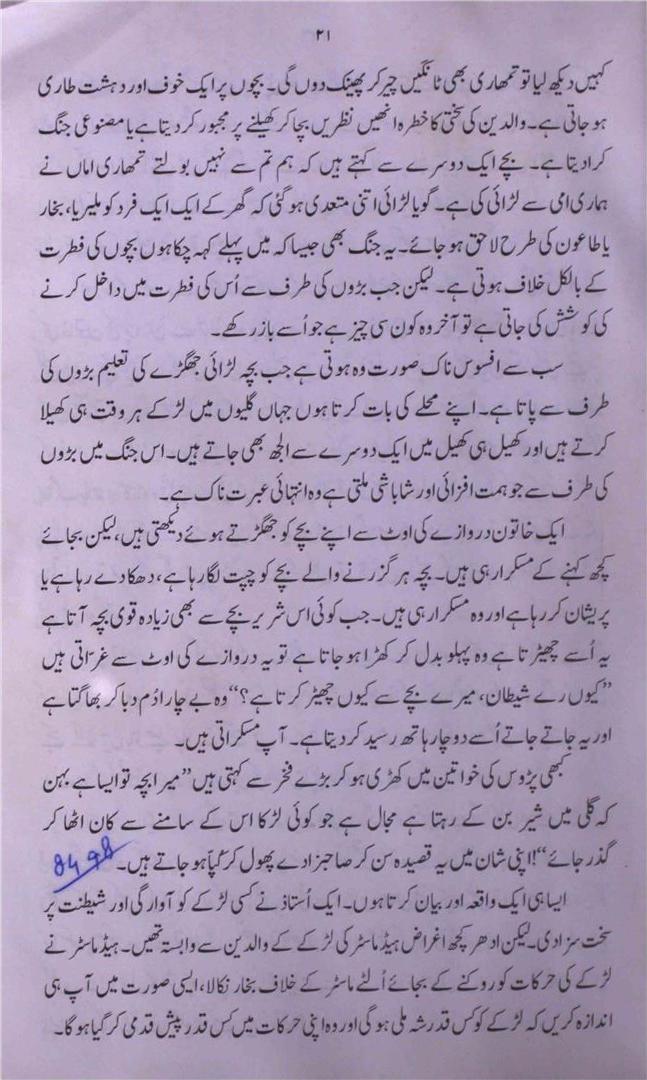 ۲۱
کہیں دیکھ لیا تو تمھاری بھی ٹانگیں چیر کر پھینک دوں گی۔ بچوں پر ایک خوف اور دہشت طاری
ہو جاتی ہے۔ والدین کی سختی کا خطرہ انھیں نظریں بچا کر کھیلنے پر مجبور کر دیتا ہے یا مصنوعی جنگ
کرا دیتا ہے۔ بچے ایک دوسرے سے کہتے ہیں کہ ہم تم سے نہیں بولتے تمھاری اماں نے
ہماری امی سے لڑائی کی ہے۔ گویا لڑائی اتنی متعدی ہو گئی کہ گھر کے ایک ایک فرد کو ملیریا، بخار
یا طاعون کی طرح لاحق ہو جائے۔ یہ جنگ بھی جیسا کہ میں پہلے کہہ چکا ہوں بچوں کی فطرت
کے بالکل خلاف ہوتی ہے۔ لیکن جب بڑوں کی طرف سے اُس کی فطرت میں داخل کرنے
کی کوشش کی جاتی ہے تو آخر وہ کون سی چیز ہے جو اُسے باز رکھے۔
سب سے افسوس ناک صورت وہ ہوتی ہے جب بچہ لڑائی جھگڑے کی تعلیم بڑوں کی
طرف سے پاتا ہے۔ اپنے محلے کی بات کرتا ہوں جہاں گلیوں میں لڑکے ہر وقت ہی کھیلا
کرتے ہیں اور کھیل ہی کھیل میں ایک دوسرے سے الجھ بھی جاتے ہیں۔ اس جنگ میں بڑوں
کی طرف سے جو ہمت افزائی اور شاباشی ملتی ہے وہ انتہائی عبرت ناک ہے۔
ایک خاتون دروازے کی اوٹ سے اپنے بچے کو جھگڑتے ہوئے دیکھتی ہیں، لیکن بجائے
کچھ کہنے کے مسکرا رہی ہیں۔ بچہ ہر گزرنے والے بچے کو چپت لگا رہا ہے، دھکا دے رہا ہے یا
پریشان کر رہا ہے اور وہ مسکرا رہی ہیں۔ جب کوئی اس شریر بچے سے بھی زیادہ قوی بچہ آتا ہے
یہ اُسے چھیڑتا ہے وہ پہلو بدل کر کھڑا ہو جاتا ہے تو یہ دروازے کی اوٹ سے غرّاتی ہیں
”کیوں رے شیطان، میرے بچے سے کیوں چھیڑ کرتا ہے؟“ وہ بے چارا دُم دبا کر بھاگتا ہے
اور یہ جاتے جاتے اُسے دو چار ہاتھ رسید کر دیتا ہے۔ آپ مسکراتی ہیں۔
کبھی پڑوس کی خواتین میں کھڑی ہو کر بڑے فخر سے کہتی ہیں ”میرا بچہ تو ایسا ہے بہن
کہ گلی میں شیر بن کے رہتا ہے مجال ہے جو کوئی لڑکا اس کے سامنے سے کان اٹھا کر
گذر جائے“! اپنی شان میں یہ قصیدہ سن کر صاحبزادے پھول کر کُپّا ہو جاتے ہیں۔
ایسا ہی ایک واقعہ اور بیان کرتا ہوں۔ ایک اُستاذ نے کسی لڑکے کو آوارگی اور شیطنت پر
سخت سزا دی۔ لیکن ادھر کچھ اغراض ہیڈ ماسٹر کی لڑکے کے والدین سے وابستہ تھیں۔ ہیڈ ماسٹر نے
لڑکے کی حرکات کو روکنے کے بجائے اُلٹے ماسٹر کے خلاف بخار نکالا، ایسی صورت میں آپ ہی
اندازہ کریں کہ لڑکے کو کس قدر شہ ملی ہوگی اور وہ اپنی حرکات میں کس قدر پیش قدمی کر گیا ہوگا۔